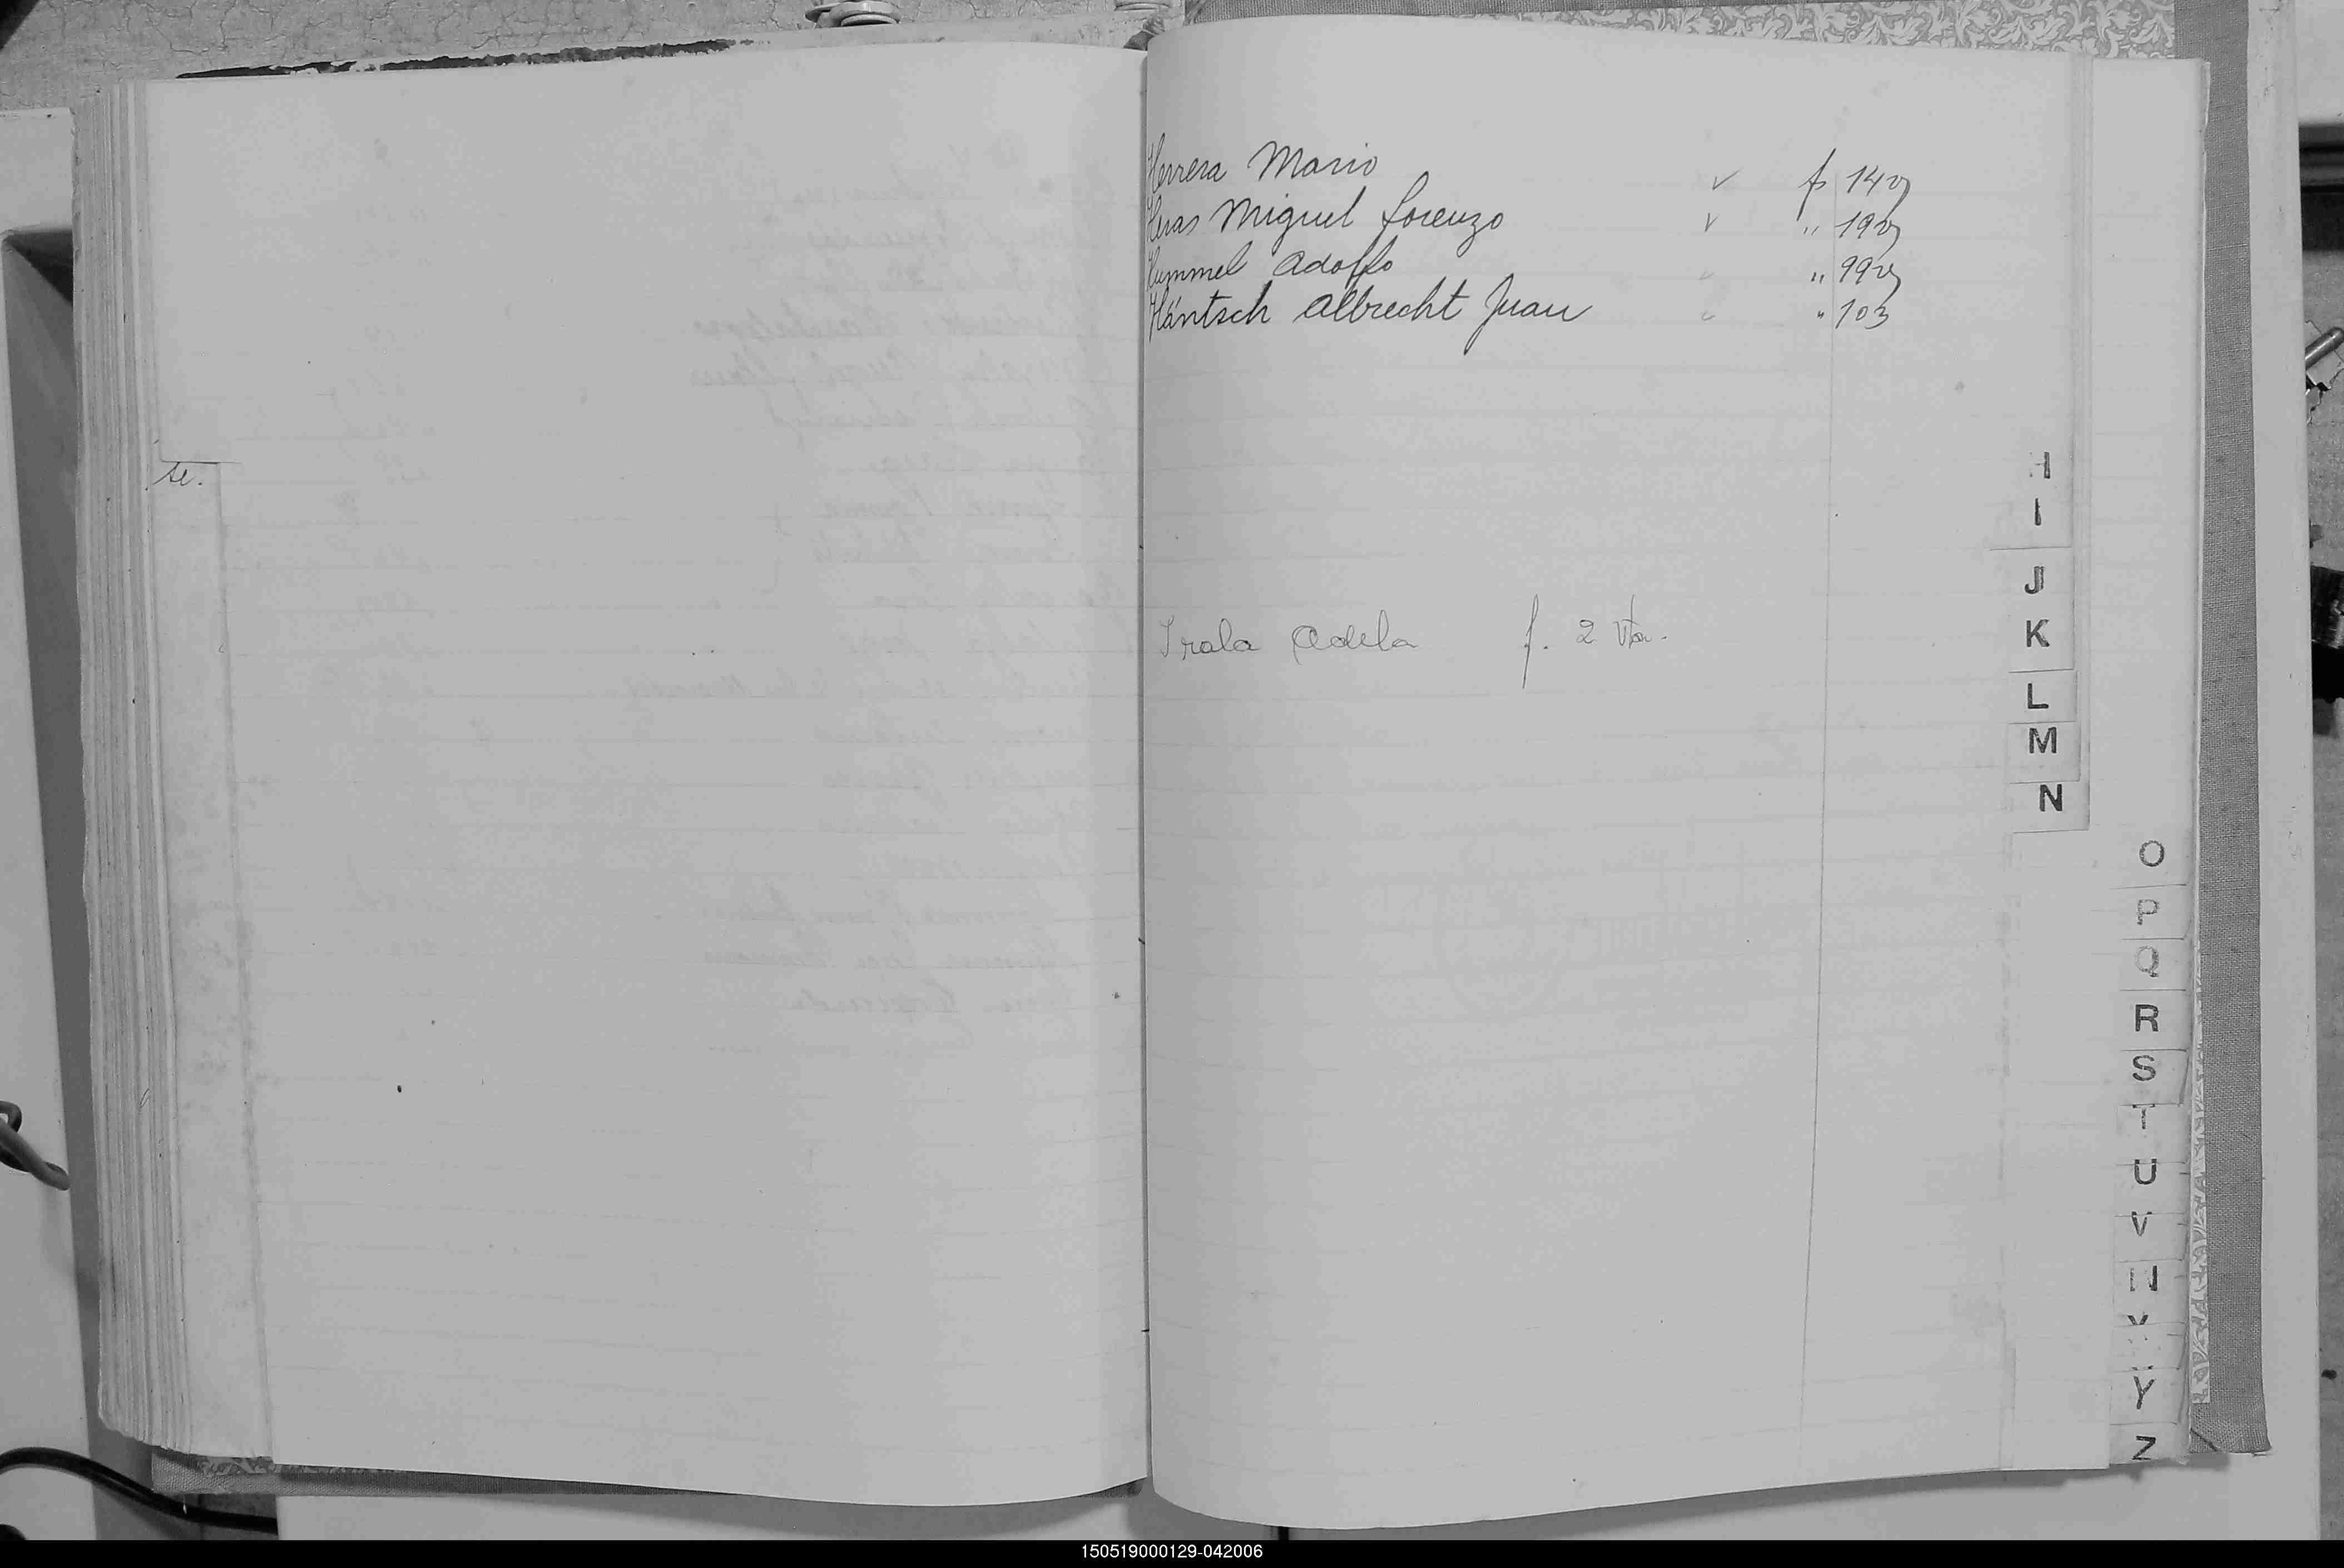 te.
Herrera Mario v f 14v
Heras Miguel Lorenzo v " 19v
Hummel Adolfo " 99v
Häntsch Albrecht Juan " 103
Irala Adela f. 2 vta.
H
I
J
K
L
M
N
O
P
Q
R
S
T
U
V
W
X
Y
Z
150519000129-042006